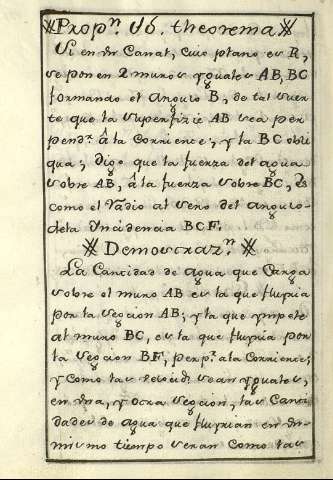 Propn. 46. theorema
Si en vn Canal, cuio plano es R,
se pon en 2 muros yguales AB, BC
formando el Angulo B, de tal suer
te que la superfizie AB sea per
pendr. â la Corriente; y la BC obli
qua; digo que la fuerza del agua
sobre AB, â la fuerza sobre BC, es
como el Radio al seno del angulo
dela Yncidencia BCF.
Demostrazn.
La Cantidad de Agua que Carga
sobre el muro AB es la que fluyria
por la seccion AB; y la que ympele
al muro BC, es la que fluyria por
la seccion BF, perpr. a la Corriente;
y como las velocids. sean yguales,
en vna, y otra seccion, las Canti
dades de agua que fluyrian en vn
mismo tiempo seran como las